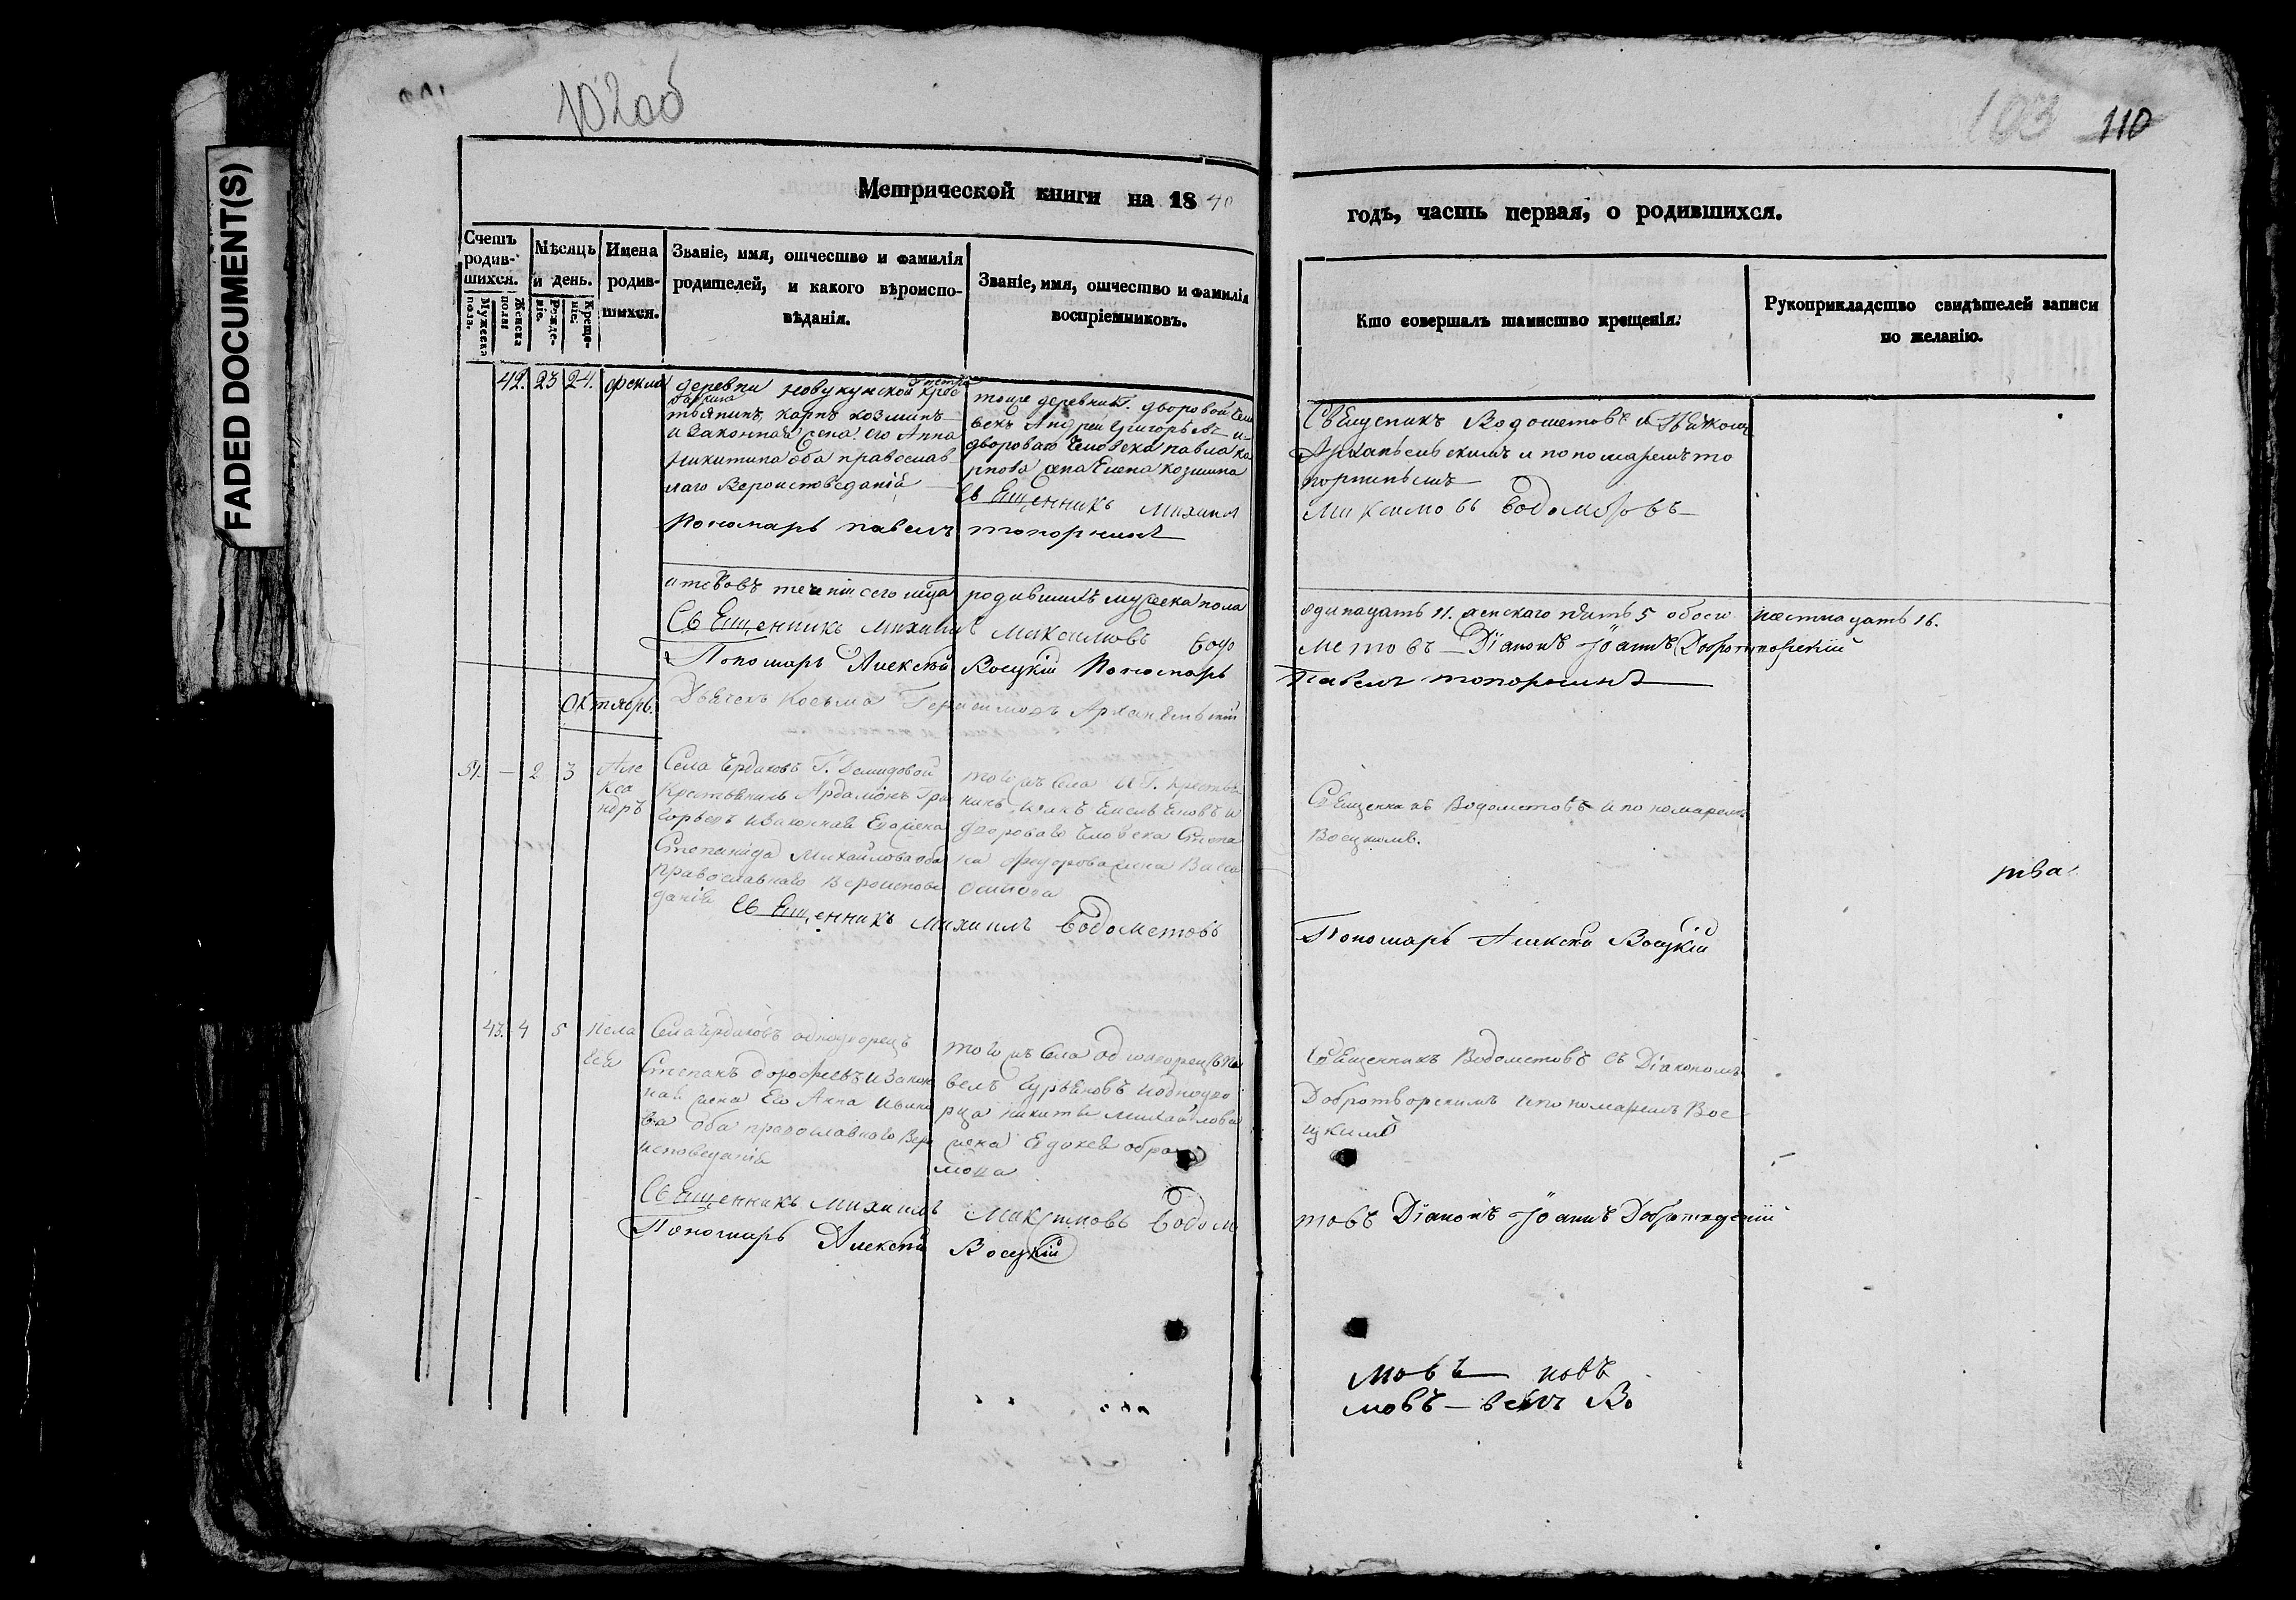 FADED DOCUMENT(S)
102об
103 110
Метрической книги на 18 40
годъ, часть первая, о родившихся.
Счетъ родив-шихся.
Мужеска пола.
Женска пола
Мѣсяцъ и день.
Рожде-ніе.
Креще-ніе.
Имена родив-шихся.
Званіе, имя, отчество и фамилія
родителей, и какого вѣроиспо-
вѣданія.
Званіе, имя, отчество и фамилія
воспріемниковъ.
Кто совершалъ таинство крещенія.
Рукоприкладство свидѣтелей записи
по желанію.
42. 23 24. фекла
деревни крес
тьянинъ, карпъ козминъ
и законная жена его Анна
Никитина оба православ
наго Вероисповеданія
тойже деревни Г. дворовой чело
векъ Андреи Григорьевъ и
дворового человека павла ка
рпова жена Елена козмина
Священникъ Михаилъ
Пономарь павелъ топорнинъ
Священникъ Водометовъ
Архангельскимъ и пономаремъ то
порнинымъ
Максимовъ Водометовъ
итого въ теченіи сего мца родившихъ мужеска пола
одинацать 11. женскаго пять 5 обоего шестнацать 16.
Священникъ Михаилъ Максимовъ Водо
метовъ Діаконъ Іоаннъ Добротворскій
Пономарь Алексей Восуцкій Пономарь
Павелъ топорнинъ
Дьячекъ Косьма Герасимовъ Архангельскій
Октябрь.
51. — 2 3 Але
кса
ндръ
Села Ердаковъ Г. Демидовой
крестьянинъ Ардамонъ Гри
горьевъ и законная Его жена
Степанида Михайлова оба
православнаго Вероиспове
данія
тогожъ села и Г. крестья
нинъ
дворового человека Степа
на федорова жена Васса
осипова
Священникъ Водометовъ и пономаремъ
тва
Священникъ Михаилъ Водометовъ
Пономарь Алексей
43. 4 5 Пела
гея
Села Ердаковъ однодворецъ
Степанъ дорофеевъ и закон
ная жена Его Анна Ивано
ва оба православнаго Веро
исповеданія
тогожъ села однодворецъ Па
велъ Гурьяновъ и однодво
рца никиты михайлова
жена Евдокея обра
мова
Священникъ Водометовъ съ Діакономъ
Добротворскимъ и пономаремъ Вос
уцкимъ
Священникъ Михаилъ Максимовъ Водом
товъ Діаконъ Іоаннъ Добротворскій
Пономарь Алексей
мовъ новъ
мовъ — велъ Во